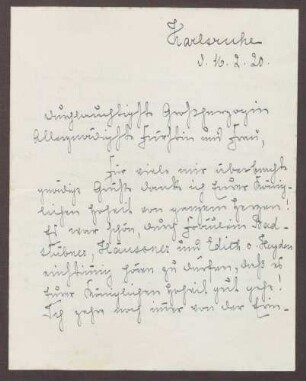 Karlsruhe
d. 16.2.20.
Durchlauchtigste Großherzogin
Allergnädigste Fürstin und Frau,
Für viele mir überbrachte
gnädige Grüße danke ich Eurer König-
lichen Hoheit von ganzem Herzen.
Es war schön, durch Fräulein
und Edith v. Heyden
hören zu dürfen, daß es
Eurer Königlichen Hoheit gut geht.
Ich zehre noch immer von der Erin-